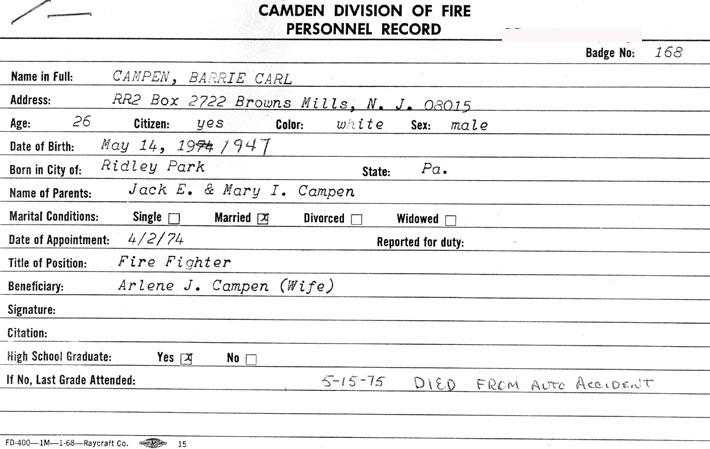 CAMDEN DIVISION OF FIRE
PERSONNEL RECORD
Badge No: 168
Name in Full: CAMPEN, BARRIE CARL
Address: RR2 Box 2722 Browns Mills, N. J. 08015
Age: 26 Citizen: yes Color: white Sex: male
Date of Birth: May 14, 1974 1947
Born in City of: Ridley Park State: Pa.
Name of Parents: Jack E. & Mary I. Campen
Marital Conditions: Single Married X Divorced Widowed
Date of Appointment: 4/2/74 Reported for duty:
Title of Position: Fire Fighter
Beneficiary: Arlene J. Campen (Wife)
Signature:
Citation:
High School Graduate: Yes X No
If No, Last Grade Attended: 5-15-75 DIED FROM AUTO ACCIDENT
FD-400—1M—1-68—Raycraft Co. 15